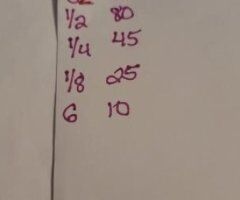 1/2 80
1/4 45
1/8 25
6 10